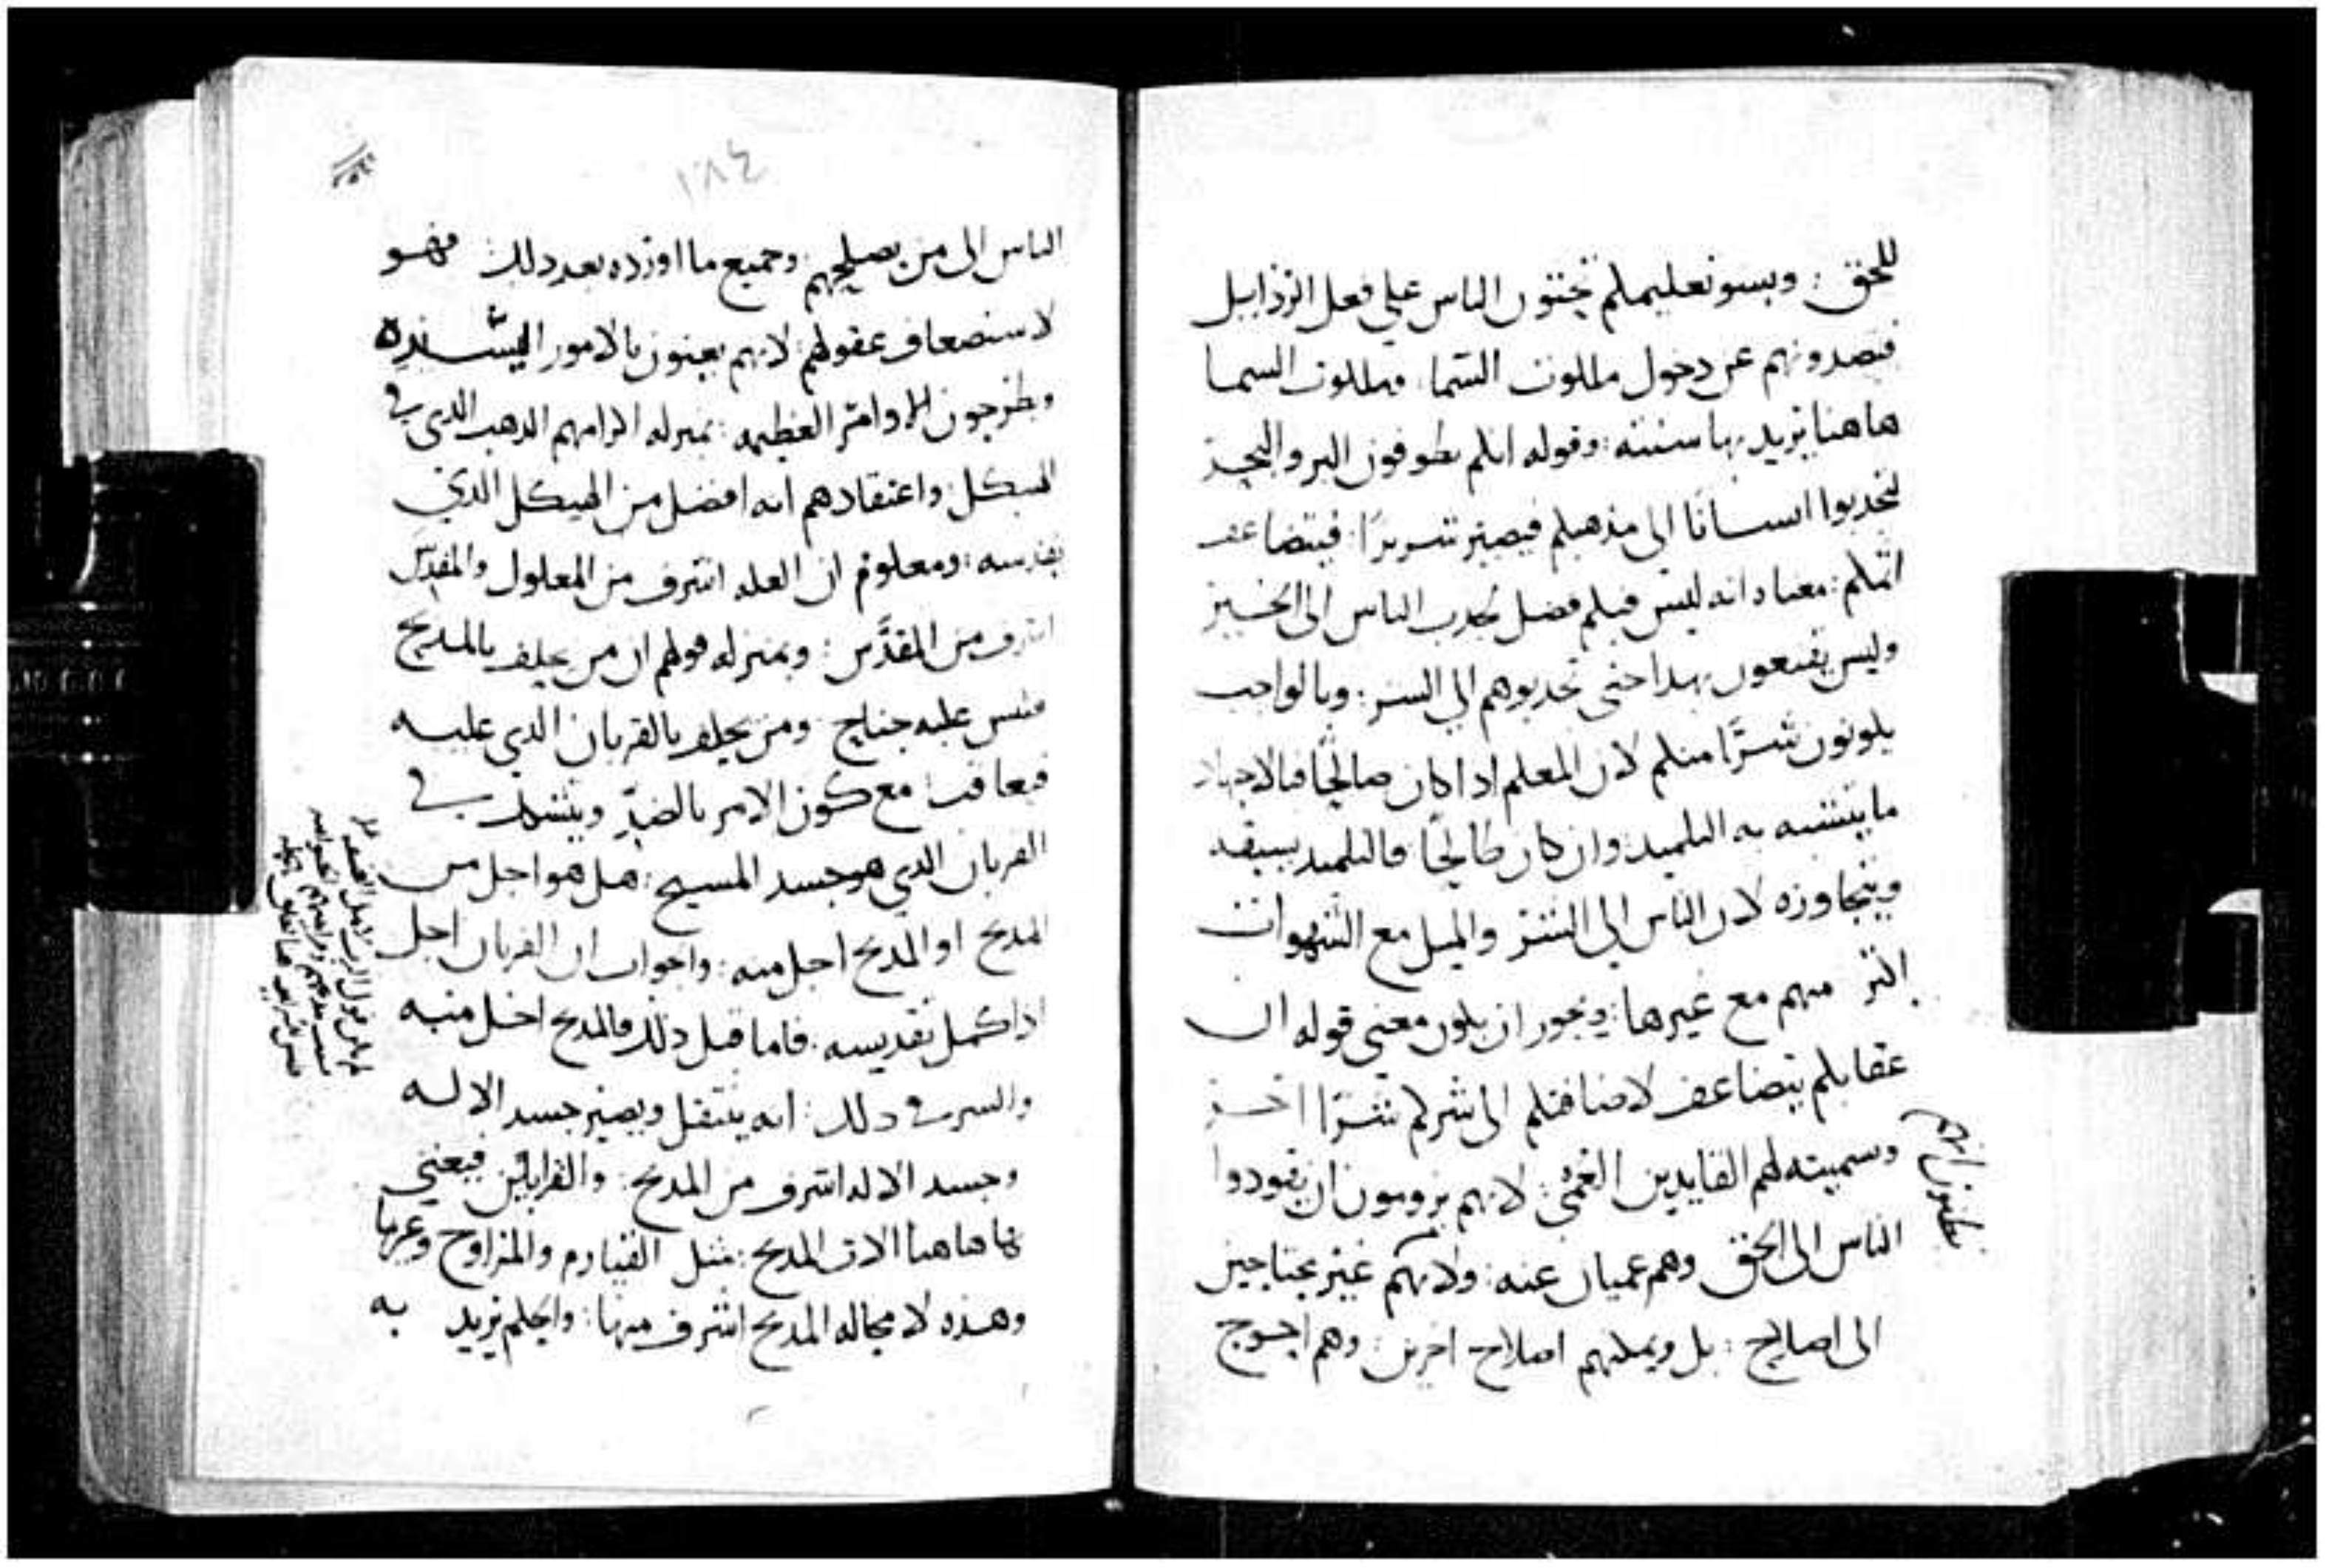 للحق : وبسو تعليمكم تحثون الناس علي فعل الرذايل
فتصدونهم عن دخول ملكوت السما . فملكوت السما
هاهنا يريد بها سنته : وقوله انكم تطوفون البر والبحر
لتجدبوا انسانا الى مذهبكم فيصير شريرًا : فيتضاعف
اثمكم : معناه انه ليس فيكم فضل لجدب الناس الى الخير
وليس يقنعون بهدا حتى تجدبوهم الي الشر : وبالواجب
يكونون شرًّا منكم لان المعلم ادا كان صالحًا فبالاجهاد
ما يتشبه به التلميد : وان كان طالحًا فالتلميد يسبقه
ويتجاوزه لان الناس الي الشر والميل مع الشهوات
اكثر منهم مع غيرها : ويجوز ان يكون معنى قوله ان
عقابكم يتضاعف لاضافتكم الى شركم شرًّا اخر
وسميته لهم القايدين العمي : لانهم يرومون ان يقودوا
الناس الى الحق وهم عميان عنه : ولانهم غير محتاجين
يظنون انهم
الى اصلاح : بل ويمكنهم اصلاح اخرين : وهم احوج
١٨٤
الناس الى من يصلحهم : وجميع ما اورده بعد دلك فهو
لاستضعاف عقولهم : لانهم يعنون بالامور اليسيره
ويطرحون الاوامر العظيمه : بمنزله اكرامهم الدهب الدي في
الهيكل : واعتقادهم انه افضل من الهيكل الدي
يقدسه : ومعلوم ان العله اشرف من المعلول والمقدِّس
اشرف من المقدَّس : وبمنزله قولهم ان من يحلف بالمدبح
فليس عليه جناح ومن يحلف بالقربان الدي عليه
فيعاقب : مع كون الامر بالضدّ ويتشكك في
القربان الدي هو جسد المسيح : هل هو اجل من
المدبح او المدبح اجل منه : والجواب ان القربان اجل
ادا كمل تقديسه : فاما قبل دلك فالمدبح اجل منه
والسر في دلك : انه ينتقل ويصير جسد الاله
وجسد الاله اشرف من المدبح : والقرابين فيعني
بها هاهنا الات المدبح : مثل القنادم والمراوح وغيرها
وهده لا محاله المدبح اشرف منها : والحكم يريد به